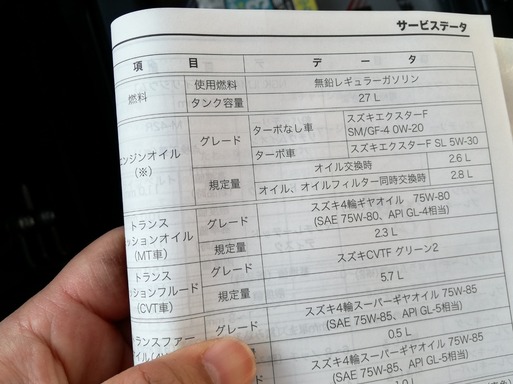 サービスデータ
項 目 デ ー タ
燃料 使用燃料 無鉛レギュラーガソリン
タンク容量 27 L
ンジンオイル
(※)
グレード ターボなし車 スズキエクスターF
SM/GF-4 0W-20
ターボ車 スズキエクスターF SL 5W-30
規定量 オイル交換時 2.6 L
オイル、オイルフィルター同時交換時 2.8 L
トランス
ッションオイル
(MT車)
グレード スズキ4輪ギヤオイル 75W-80
(SAE 75W-80、API GL-4相当)
規定量 2.3 L
トランス
ションフルード
(CVT車)
グレード スズキCVTF グリーン2
規定量 5.7 L
ランスファー
グレード スズキ4輪スーパーギヤオイル 75W-85
(SAE 75W-85、API GL-5相当)
0.5 L
スズキ4輪スーパーギヤオイル 75W-85
(SAE 75W-85、API GL-5相当)